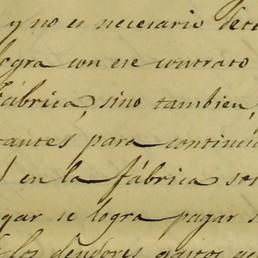 y no es necesario dete
logra con ese contrato
Fábrica, sino tambien,
tantes para continua
en la fábrica se
gar se logra pagar
los deudores